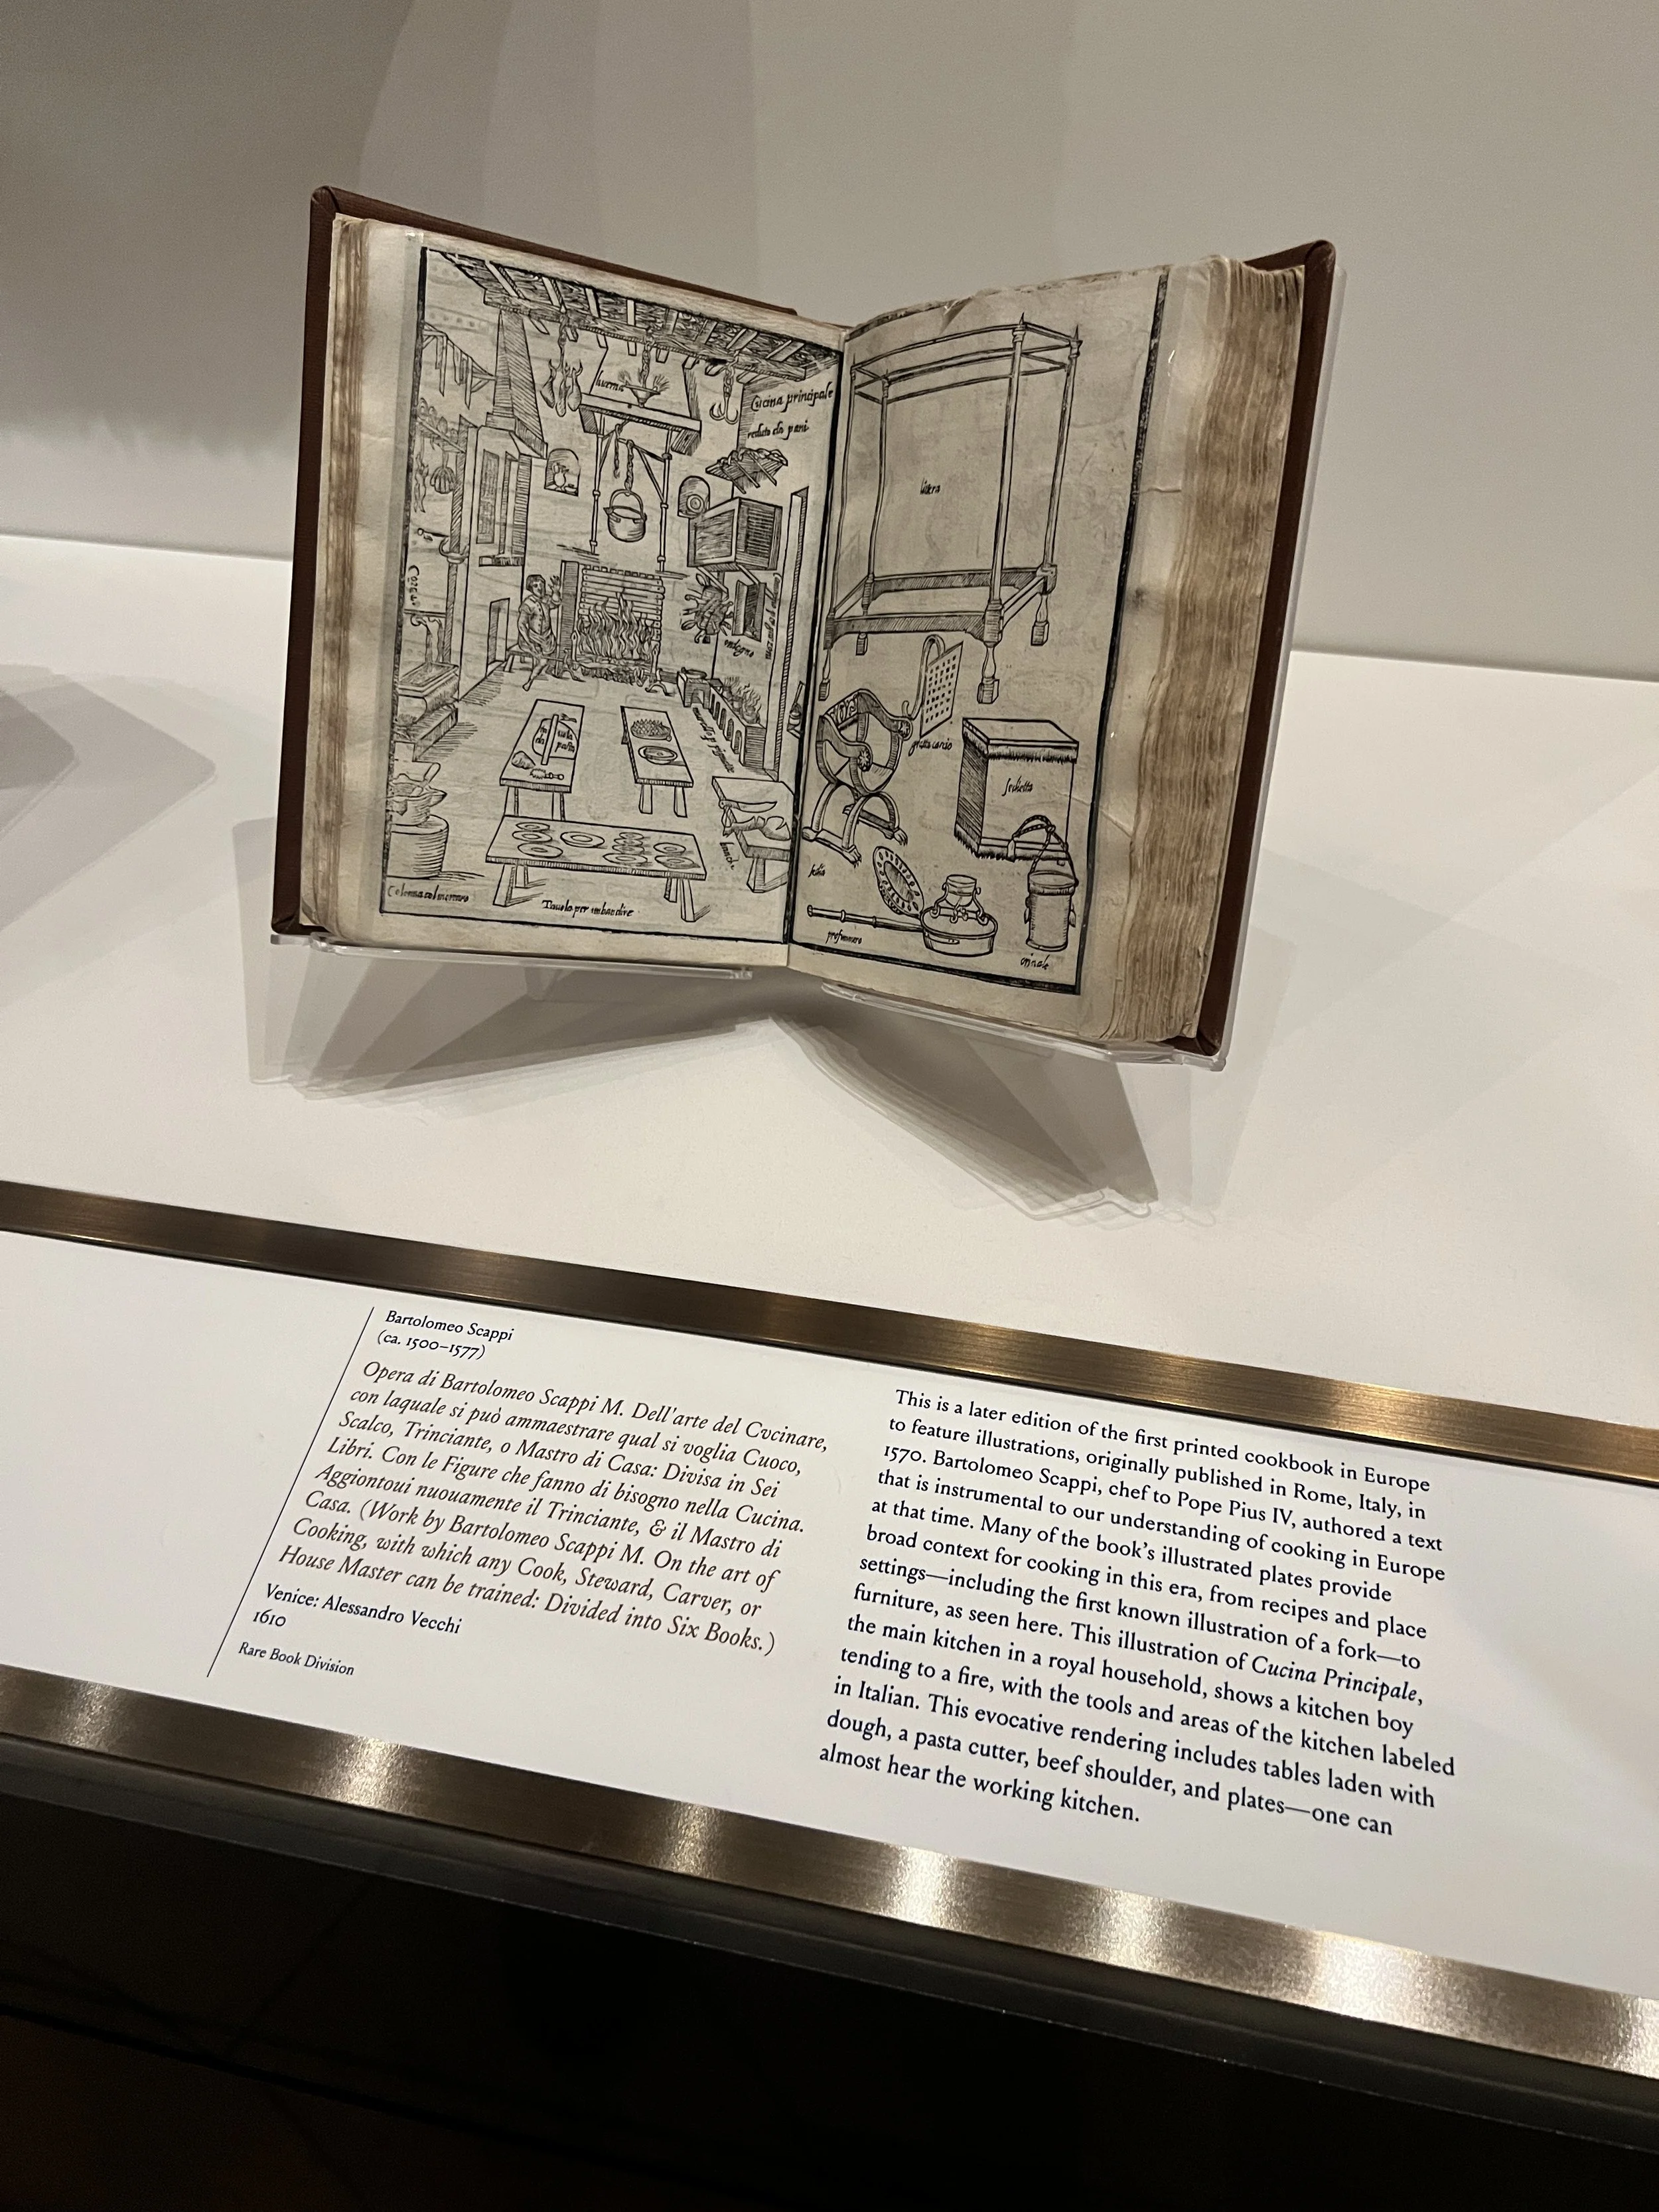 lucerna
Cucina principale
Tauola per imbandire
litiera
sedia
orinale
Bartolomeo Scappi
(ca. 1500–1577)
Opera di Bartolomeo Scappi M. Dell'arte del Cvcinare,
con laquale si può ammaestrare qual si voglia Cuoco,
Scalco, Trinciante, o Mastro di Casa: Divisa in Sei
Libri. Con le Figure che fanno di bisogno nella Cucina.
Aggiontoui nuouamente il Trinciante, & il Mastro di
Casa. (Work by Bartolomeo Scappi M. On the art of
Cooking, with which any Cook, Steward, Carver, or
House Master can be trained: Divided into Six Books.)
Venice: Alessandro Vecchi
1610
Rare Book Division
This is a later edition of the first printed cookbook in Europe
to feature illustrations, originally published in Rome, Italy, in
1570. Bartolomeo Scappi, chef to Pope Pius IV, authored a text
that is instrumental to our understanding of cooking in Europe
at that time. Many of the book's illustrated plates provide
broad context for cooking in this era, from recipes and place
settings—including the first known illustration of a fork—to
furniture, as seen here. This illustration of Cucina Principale,
the main kitchen in a royal household, shows a kitchen boy
tending to a fire, with the tools and areas of the kitchen labeled
in Italian. This evocative rendering includes tables laden with
dough, a pasta cutter, beef shoulder, and plates—one can
almost hear the working kitchen.